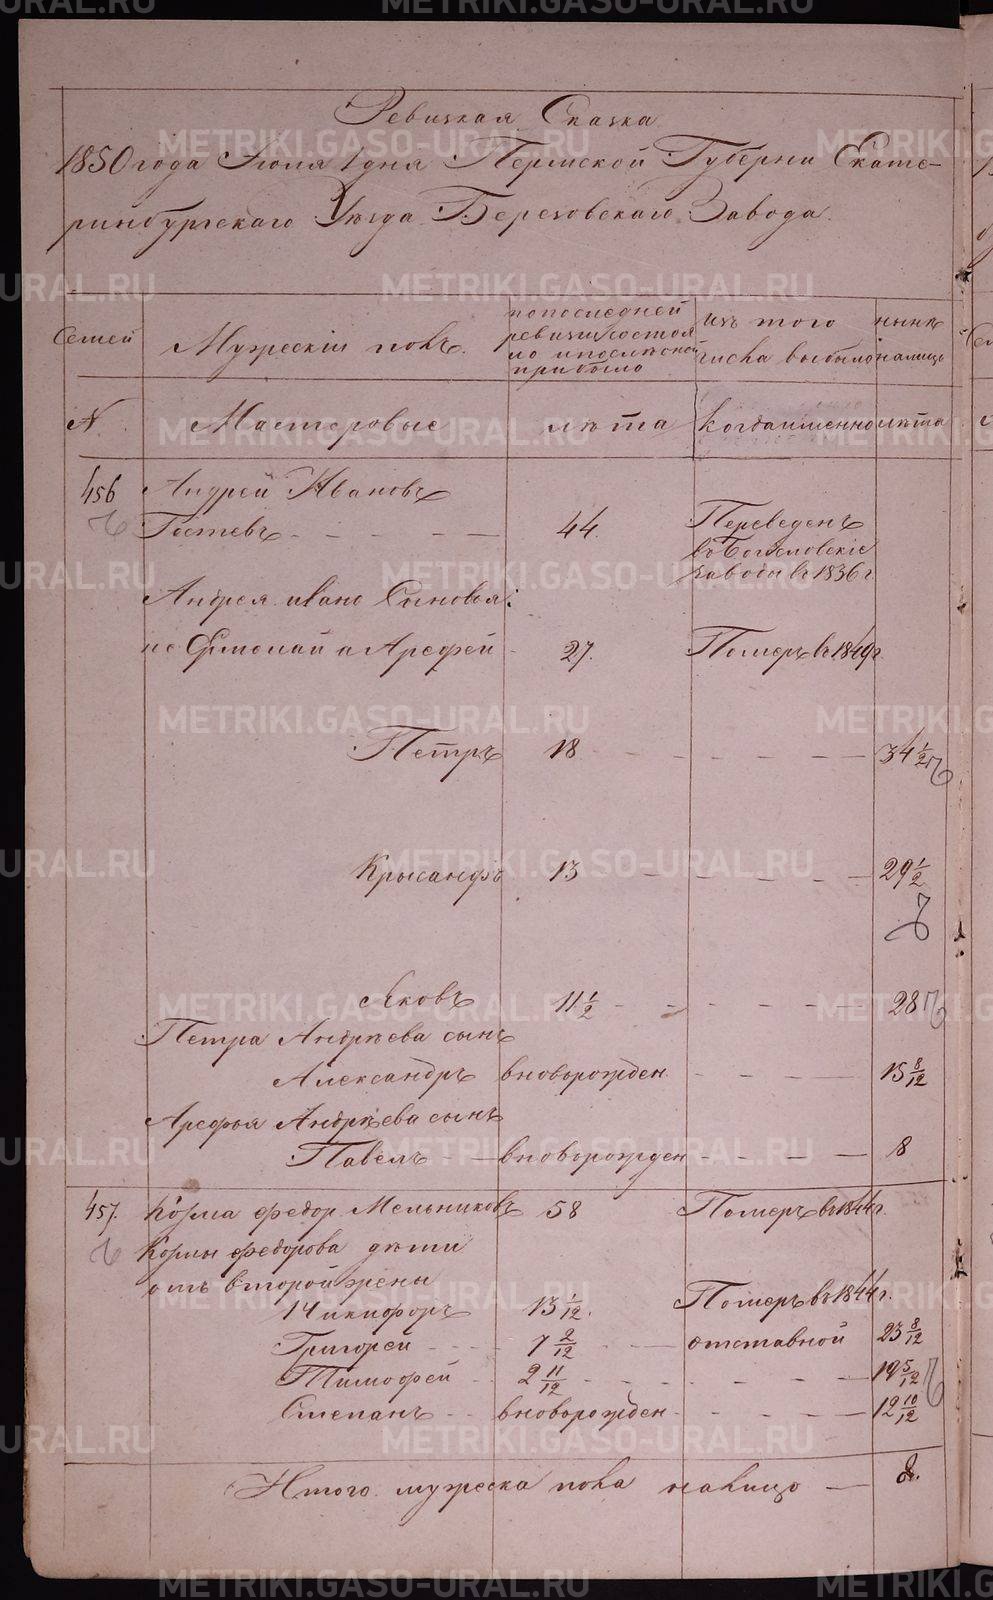 Ревизкая Сказка
1850 года Июля 1 дня Пермской Губерни Екате-
ринбургскаго Уезда Березовскаго Завода.
Семей
Мужескiй полъ.
по последней
ревизiи состоя
ло и после оной
прибыло
изъ того
числа выбыло
ныне
налицо
№
Мастеровые
лѣта
когда именно
лѣта
456
Андрей Ивановъ
Гостевъ
44.
Переведенъ
въ Богословскiе
заводы въ 1836 г
Андрея Иванo Сыновья:
не Ермолай а Арефей
27.
Померъ въ 1849 г
Петръ
18
34 1/2
Крысанфъ
13
29 1/2
Яковъ
11 1/2
28
Петра Андрѣева сынъ
Александръ
вноворожден
15 8/12
Арефья Андрѣева сынъ
Павелъ
вноворожден
8
457.
Козма Федор Мельниковъ
58
Померъ въ 1844 г.
Козмы Федорова дѣти
отъ второй жены
1й Никифоръ
13 1/12.
Померъ въ 1844 г.
Григорей
7 2/12
отставной
23 8/12
Тимофей
2 11/12
19 5/12
Степанъ
вноворожден
12 10/12
Итого мужеска пола налицо
8.
METRIKI.GASO-URAL.RU